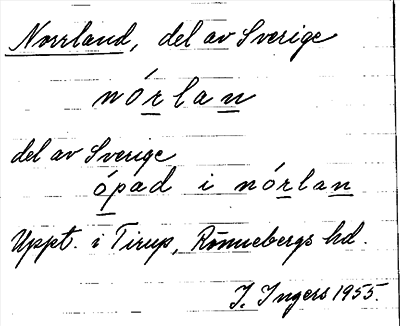 Norrland, del av Sverige
nórlan
del av Sverige
ópad i nórlan
Uppt. i Tirup, Rönnebergs hd.
I. Ingers 1955.